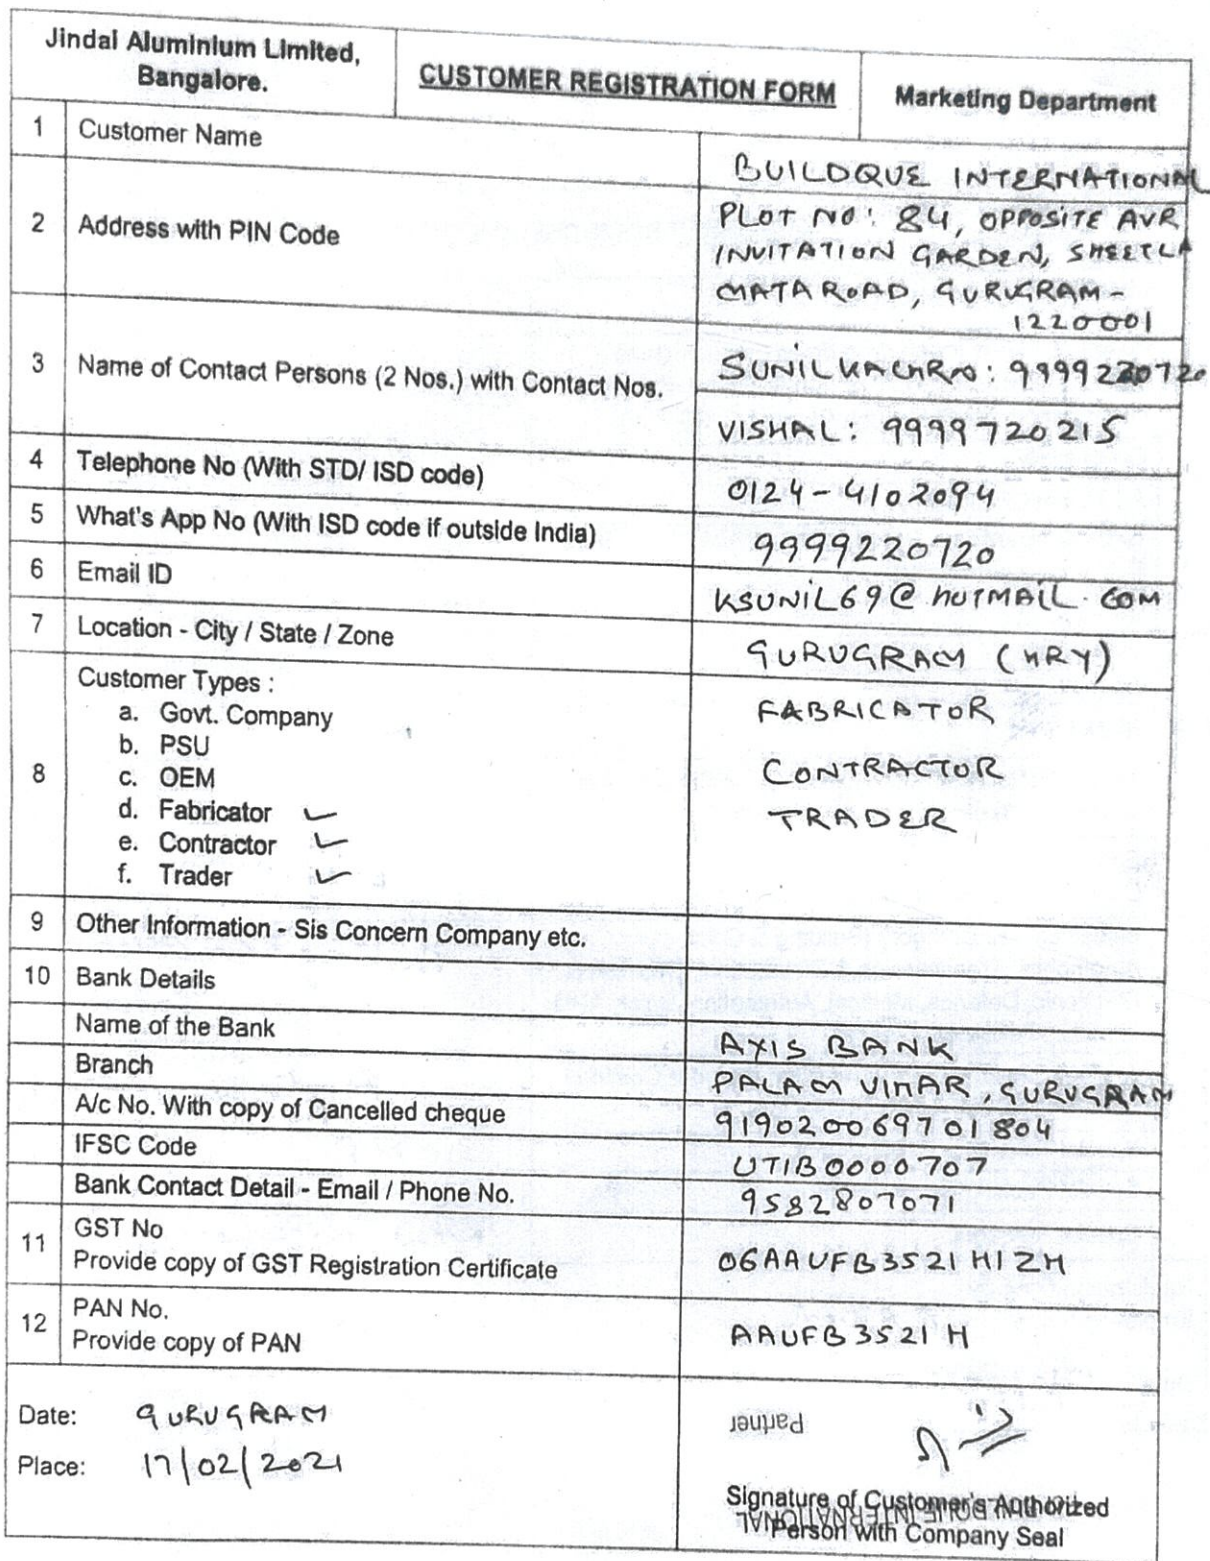 Jindal Aluminium Limited,
Bangalore.
CUSTOMER REGISTRATION FORM
Marketing Department
1 Customer Name
BUILDQUE INTERNATIONAL
2 Address with PIN Code
PLOT NO: 84, OPPOSITE AVR
INVITATION GARDEN, SHEETLA
MATA ROAD, GURUGRAM -
1220001
3 Name of Contact Persons (2 Nos.) with Contact Nos.
SUNIL : 9999220720
VISHAL: 9999720215
4 Telephone No (With STD/ ISD code)
0124-4102094
5 What's App No (With ISD code if outside India)
9999220720
6 Email ID
KSUNIL69@HOTMAIL.COM
7 Location - City / State / Zone
GURUGRAM (HRY)
8 Customer Types :
a. Govt. Company
b. PSU
c. OEM
d. Fabricator
e. Contractor
f. Trader
FABRICATOR
CONTRACTOR
TRADER
9 Other Information - Sis Concern Company etc.
10 Bank Details
Name of the Bank
AXIS BANK
Branch
PALAM VIHAR, GURUGRAM
A/c No. With copy of Cancelled cheque
919020069701804
IFSC Code
UTIB0000707
Bank Contact Detail - Email / Phone No.
9582807071
11 GST No
Provide copy of GST Registration Certificate
06AAUFB3521H1ZH
12 PAN No.
Provide copy of PAN
AAUFB3521H
Date: GURUGRAM
Place: 17/02/2021
Partner
Signature of Customer's Authorized
INTERNATIONAL
Person with Company Seal